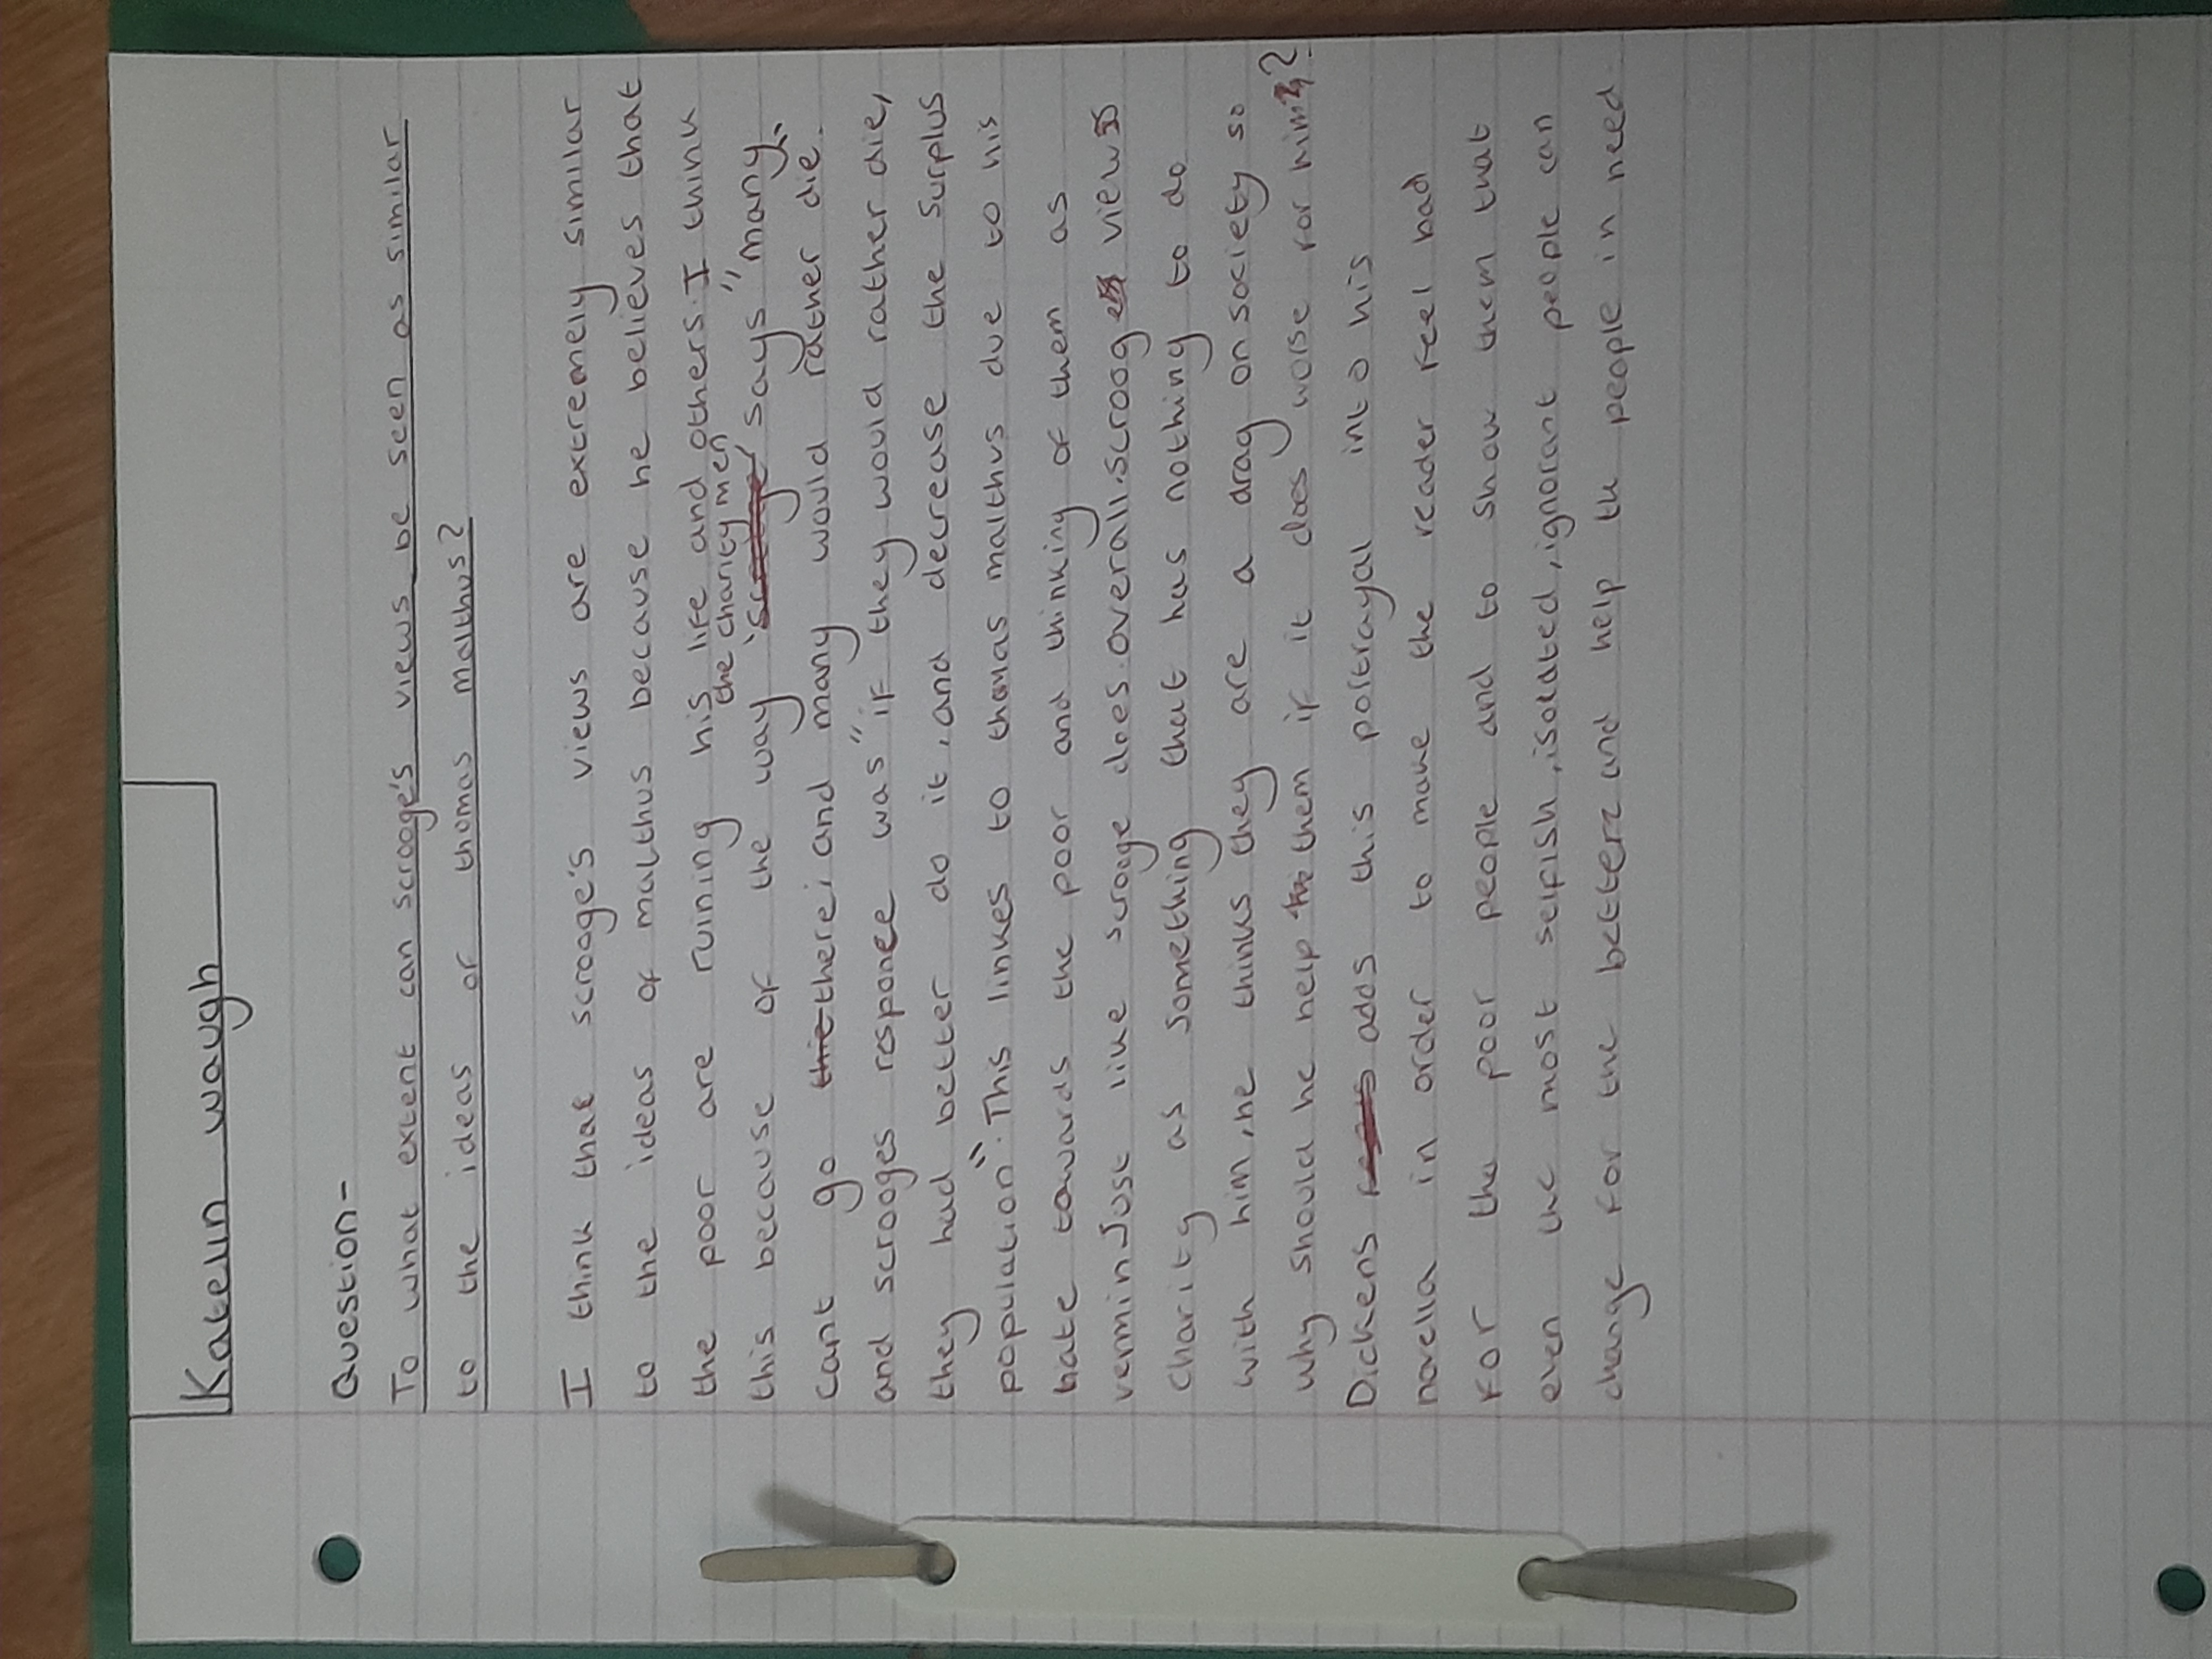 Katelin waugh
Question-
To what extent can scrooge's views be seen as similar
to the ideas of thomas malthus?
I think that scrooge's views are extremely similar
to the ideas of malthus because he believes that
the poor are ruining his life and others. I think
the charity men
this because of the way scrooge says "many
cant go there; and many would rather die."
and scrooges responce was "if they would rather die,
they had better do it, and decrease the surplus
population". This links to thomas malthus due to his
hate towards the poor and thinking of them as
vermin Just like scrooge does. overall. scroog views
charity as something that has nothing to do
with him, he thinks they are a drag on society so
why should he help them if it does worse for him?
Dickens adds this portrayal into his
novella in order to make the reader feel bad
for the poor people and to show them that
even the most selfish, isolated, ignorant people can
change for the better and help th people in need.